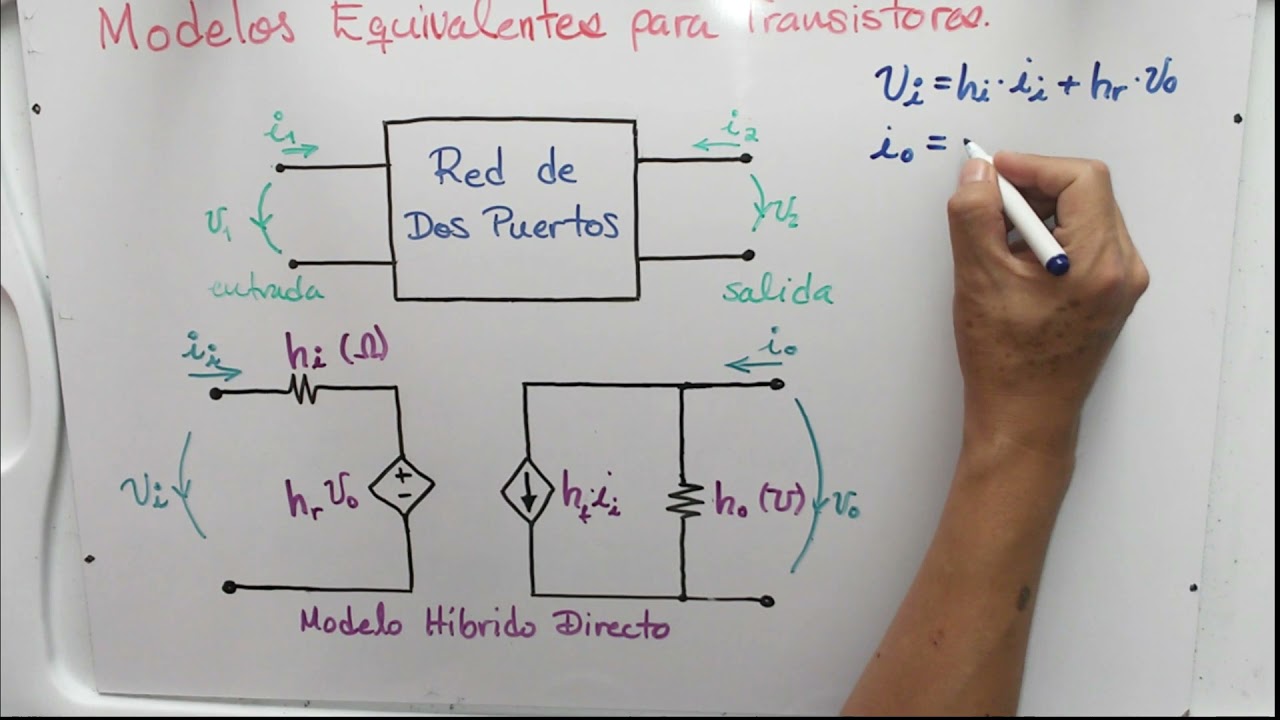 Modelos Equivalentes para Transistores.
vi = hi · ii + hr · vo
io =
i1
i2
Red de
Dos Puertos
v1
v2
entrada
salida
ii
hi (Ω)
io
vi
hr vo
+
-
hf ii
ho (℧)
vo
Modelo Híbrido Directo